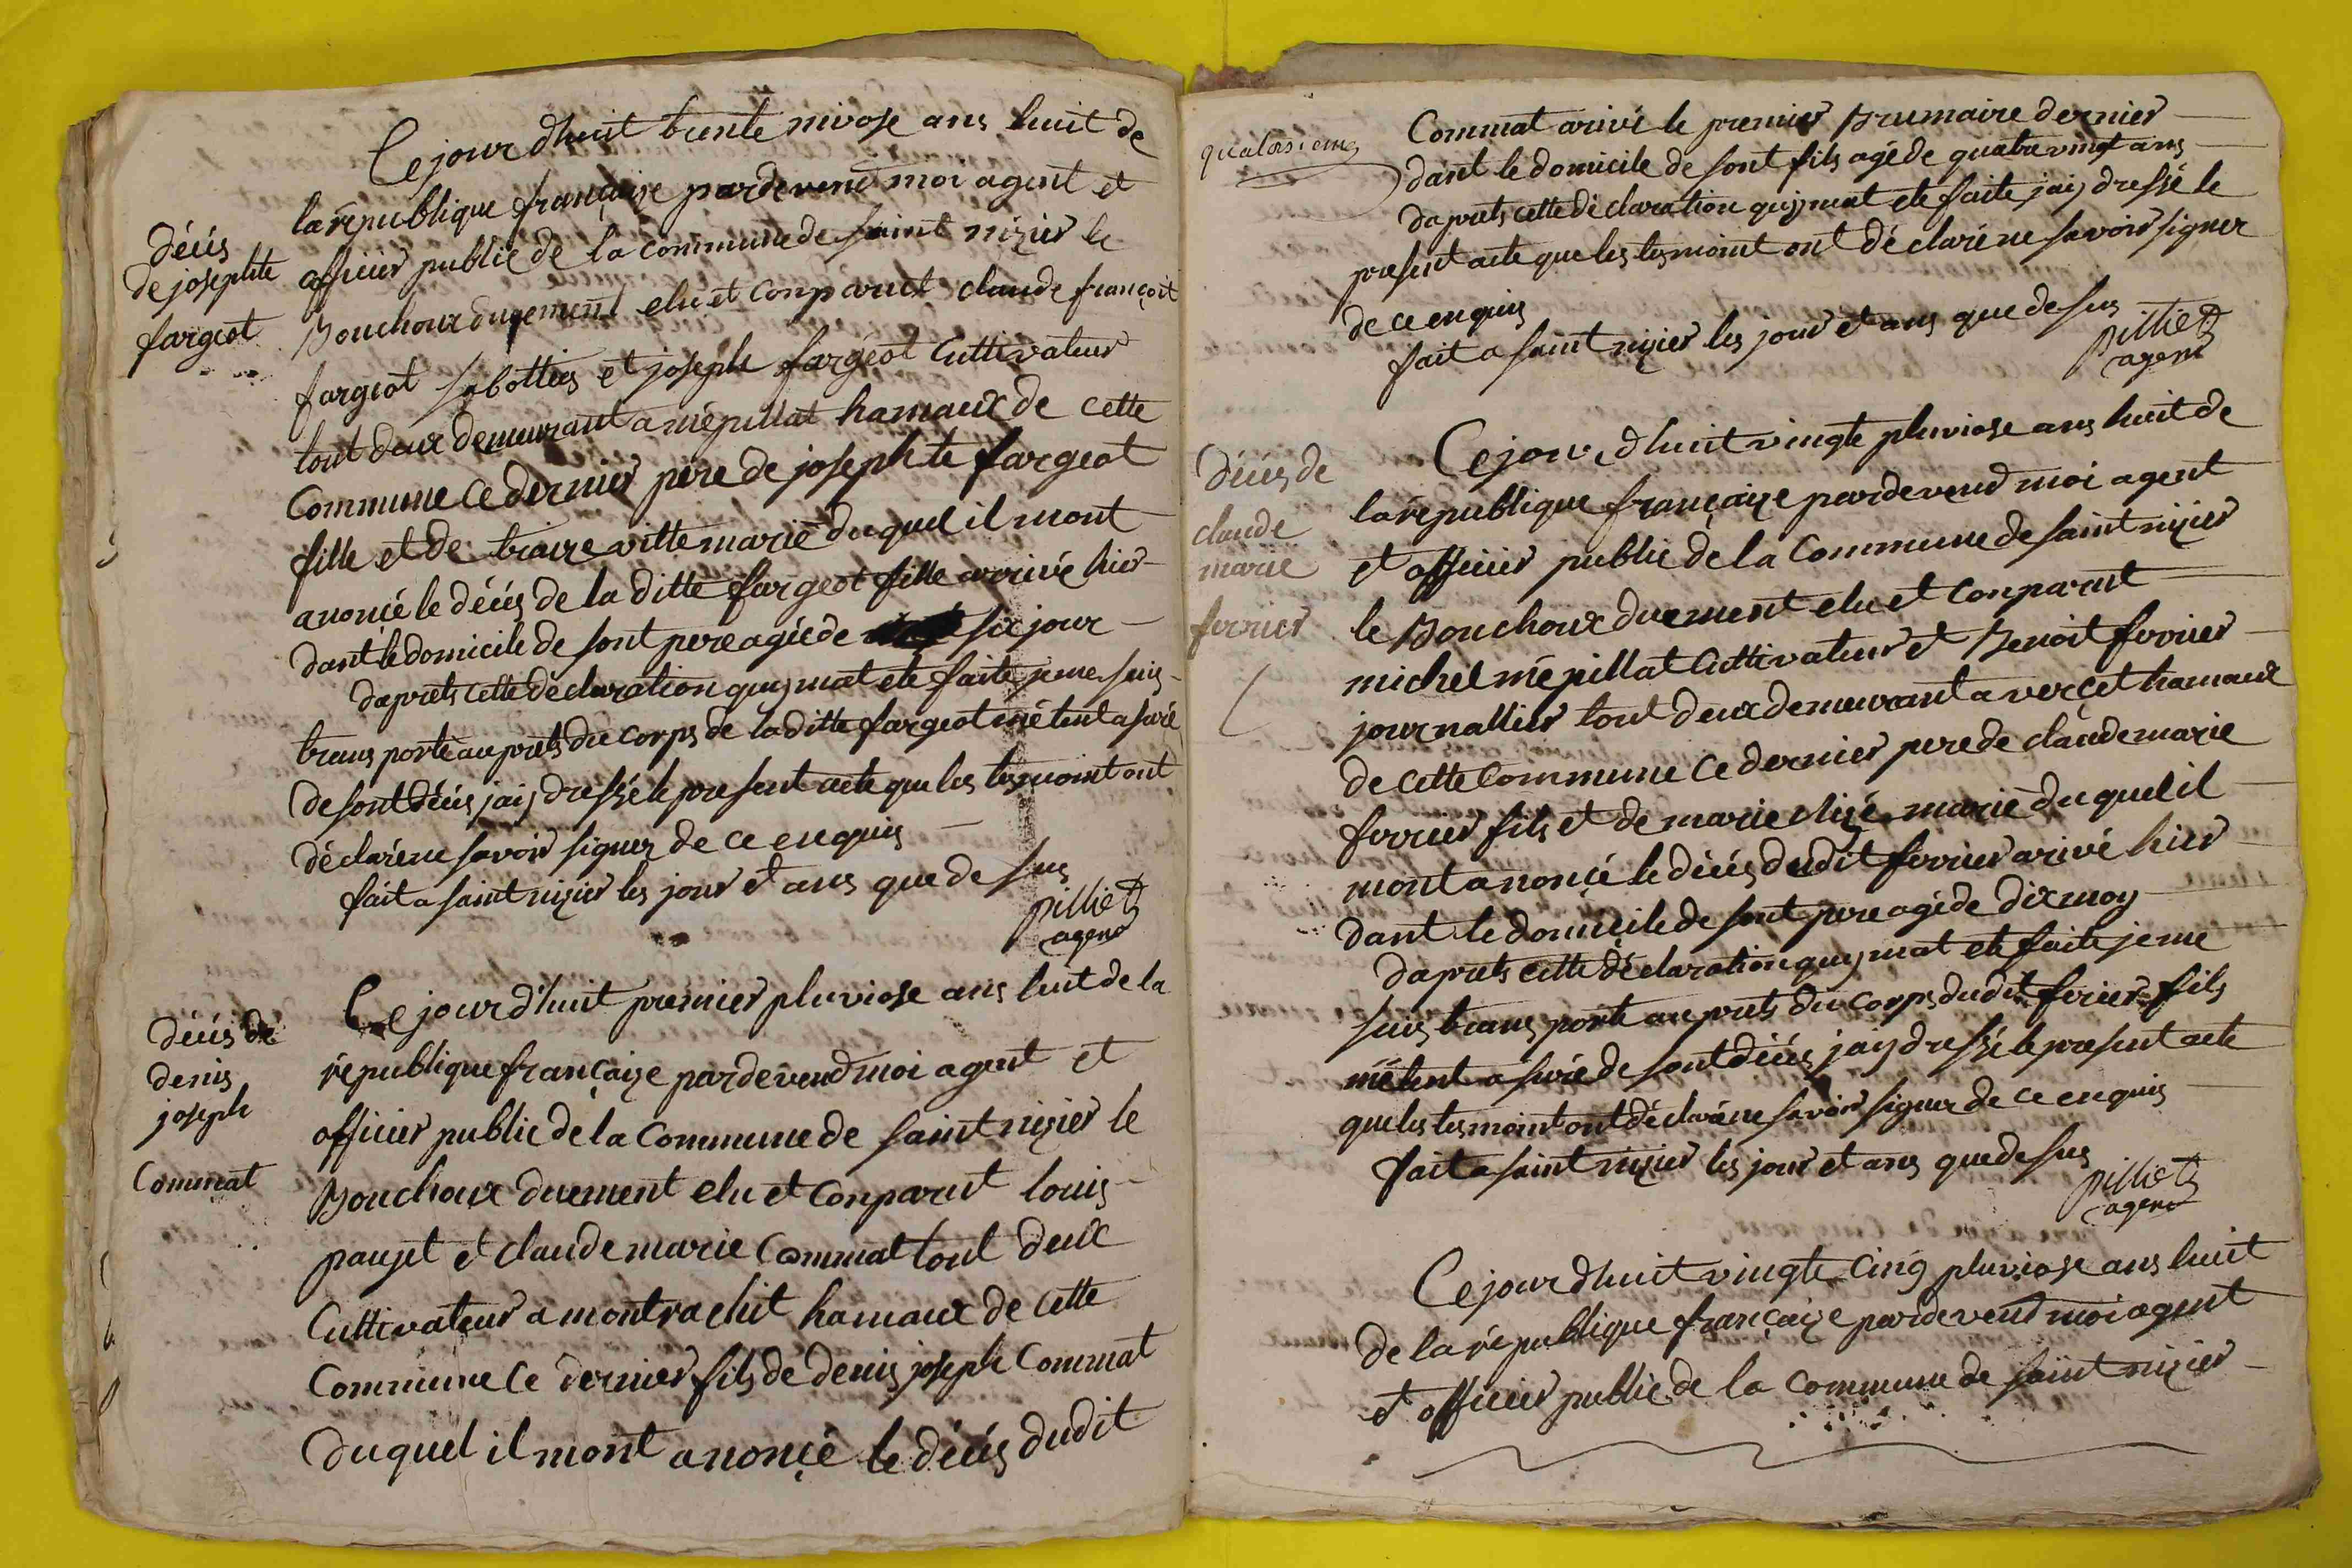 Cejourdhuit trente nivose ans huit de
la république françaize pardevend moi agent et
officier public de la commune de saint nizier le
Bouchoux duement elu et Conparut claude françoit
fargeot sabottier et joseph fargeot Cultivateur
tout deux demeurant a mépillat hamaux de cette
Commune Ce dernier pere de josephte fargeot
fille et de vitte marie duquel il mont
anoncé le décés de la ditte fargeot fille arrivé hier
dant le domicile de sont pere agée de six jour
daprets cette déclaration quij mat ete faite je me suis
trans porté auprets du corps de la ditte fargeot mé tent asuré
de sont décés jaij dressé le present acte que les tesmoint ont
déclaré ne savoir signer de ce enquis
fait a saint nizier les jour et ans que de sus
pilliet
agent
décés
de josephte
fargeot
Ce jour d'huit premier pluviose ans huit de la
république françaize pardevend moi agent et
officier public de la Commune de saint nizier le
Bouchoux duement elu et Conparut louis
paujet et claude marie Commat tout deux
Cultivateur a montrachit hamaux de cette
Commune Ce dernier fils de denis joseph Commat
duquel il mont anoncé le décés dudit
décés de
denis
joseph
Commat
quatorsieme
Commat arivé le premier Brumaire dernier
dant le domicile de sont fils agé de quatre vingt ans
daprets cette déclaration quij mat ete faite jaij dressé le
present acte que les tesmoint ont déclaré ne savoir signer
de ce enquis
fait a saint nizier les jour et ans que de sus
pilliet
agent
Cejourdhuit vingte pluviose ans huit de
la république françaize pardevend moi agent
et officier public de la Commune de saint nizier
le Bouchoux duement elu et Conparut
michel mépillat Cultivateur et Benoit ferrier
journallier tout deux demeurant a verçet hamaux
de cette Commune Ce dernier pere de claude marie
ferrier fils et de marie marie duquel il
mont anoncé le décés dudit ferrier arivé hier
dant le domicile de sont pere agé de dix moy
daprets cette déclaration quij mat ete faite je me
suis trans porté au prets du corps dudit ferier fils
mé tent asuré de sont décés jaij dressé le present acte
que les tesmoint ont déclaré ne savoir signer de ce enquis
fait a saint nizier les jour et ans que de sus
pilliet
agent
décés de
claude
marie
ferrier
Ce jour dhuit vingte Cinq pluviose ans huit
de la république françaize pardevend moi agent
et officier public de la Commune de saint nizier